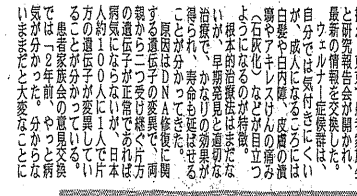 と研究報告会が開かれ、
最新の情報を交換した。
ウェルナー症候群は、
自分では気付きにくい
が、成人になるころには
白髪や白内障、皮膚の潰
瘍やアキレスけんの痛み
(石灰化)などが目立つ
ようになるのが特徴。
根本的治療法はまだな
いが、早期発見と適切な
治療で、かなりの効果が
得られ、寿命も延ばせる
ことが分かってきた。
原因はDNA修復に関
する遺伝子の変異で、両
親から二つ受け継ぐ片方
の遺伝子が正常であれば
病気にならないが、日本
人約100人に1人で片
方の遺伝子が変異してい
ることが分かっている。
患者家族会の意見交換
では「2年前、やっと病
気が分かった。分からな
いままだと大変なことに